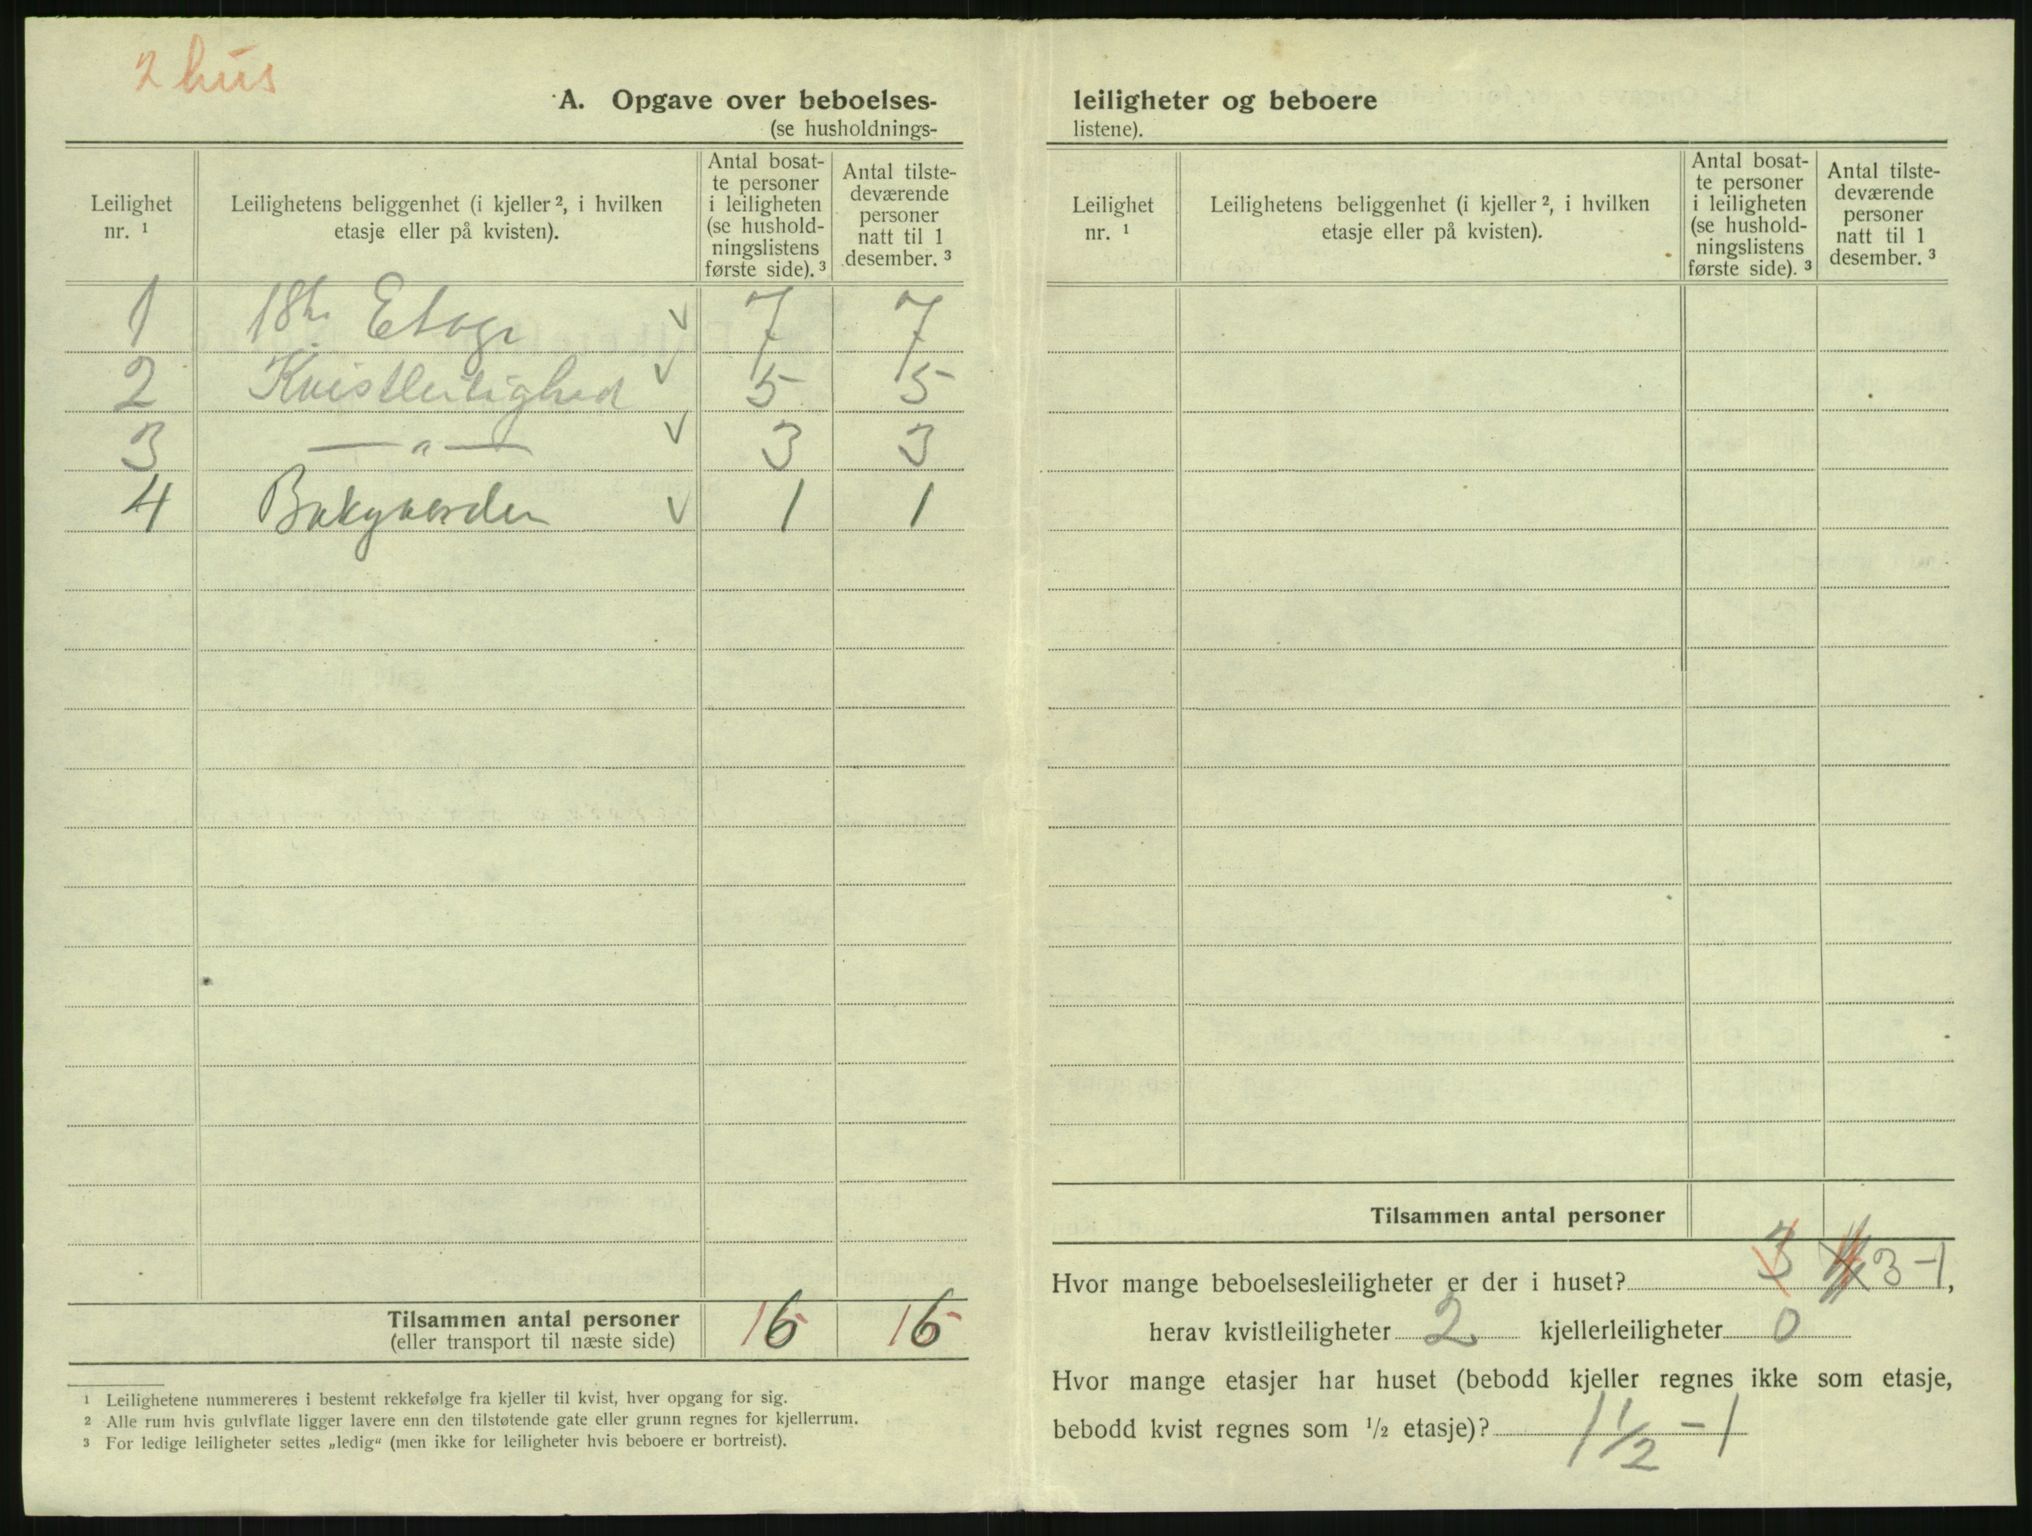 2 hus
A. Opgave over beboelses-
(se husholdnings-
Leilighet nr. 1
Leilighetens beliggenhet (i kjeller 2, i hvilken etasje eller på kvisten).
Antal bosat-
te personer
i leiligheten
(se hushold-
ningslistens
første side). 3
Antal tilste-
deværende
personer
natt til 1
desember. 3
1 18te Etage v 7 7
2 Kvistleilighed v 5 5
3 — " — v 3 3
4 Bakgaarden v 1 1
Tilsammen antal personer 16 16
(eller transport til næste side)
1 Leilighetene nummereres i bestemt rekkefølge fra kjeller til kvist, hver opgang for sig.
2 Alle rum hvis gulvflate ligger lavere enn den tilstøtende gate eller grunn regnes for kjellerrum.
3 For ledige leiligheter settes „ledig“ (men ikke for leiligheter hvis beboere er bortreist).
leiligheter og beboere
listene).
Leilighet nr. 1
Leilighetens beliggenhet (i kjeller 2, i hvilken etasje eller på kvisten).
Antal bosat-
te personer
i leiligheten
(se hushold-
ningslistens
første side). 3
Antal tilste-
deværende
personer
natt til 1
desember. 3
Tilsammen antal personer
Hvor mange beboelsesleiligheter er der i huset? 3 3-1,
herav kvistleiligheter 2 kjellerleiligheter 0
Hvor mange etasjer har huset (bebodd kjeller regnes ikke som etasje,
bebodd kvist regnes som 1/2 etasje)? 1 1/2 - 1